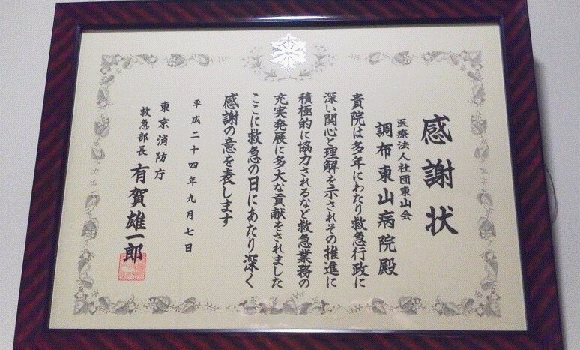 感謝状
医療法人社団東山会
調布東山病院殿
貴院は多年にわたり救急行政に
深い関心と理解を示されその推進に
積極的に協力されるなど救急業務の
充実発展に多大な貢献をされました
ここに救急の日にあたり深く
感謝の意を表します
平成二十四年九月七日
東京消防庁
救急部長 有賀雄一郎